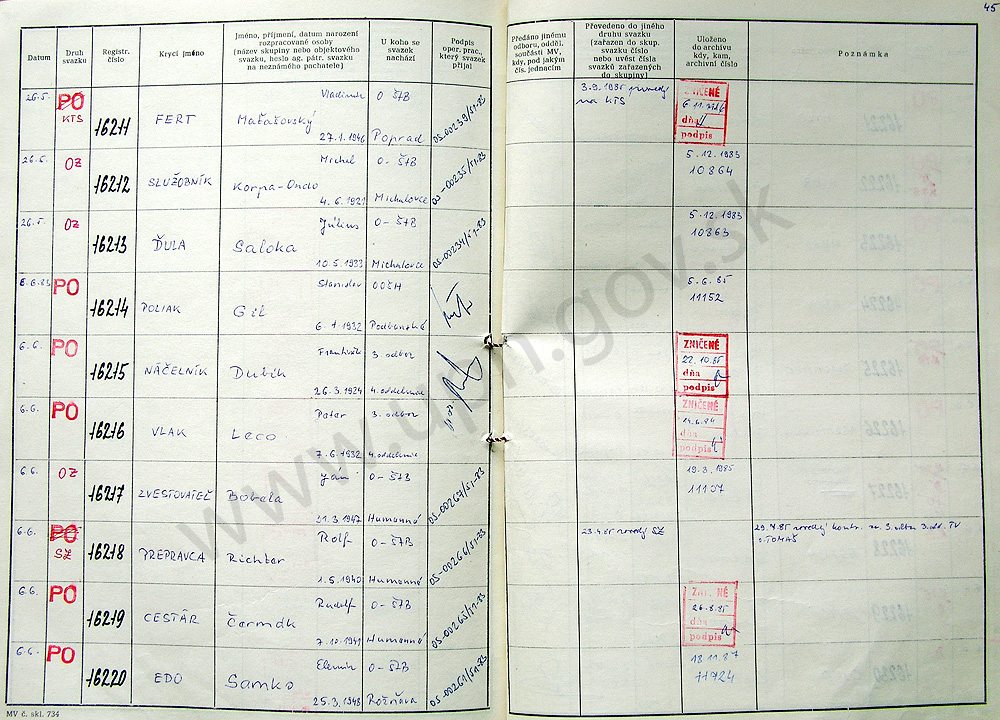 45
Datum
Druh svazku
Registr. číslo
Krycí jméno
Jméno, příjmení, datum narození rozpracované osoby (název skupiny nebo objektového svazku, heslo ag. pátr. svazku na neznámého pachatele)
U koho se svazek nachází
Podpis oper. prac., který svazek přijal
Předáno jinému odboru, odděl. součásti MV, kdy, pod jakým čís. jednacím
Převedeno do jiného druhu svazku (zařazen do skup. svazku číslo nebo uvést čísla svazků zařazených do skupiny)
Uloženo do archivu kdy, kam, archivní číslo
Poznámka
26.5. PO KTS 16211 FERT Vladimír Maťašovský 27.1.1946 O ŠTB Poprad OS-00239/51-83 3.9.1985 na KTS ZNIČENÉ dňa podpis
26.5. OZ 16212 SLUŽOBNÍK Michal Korpa-Ondo 4.6.1921 O-ŠTB Michalovce OS-00235/51-83 5.12.1983 10864
26.5. OZ 16213 ĎULA Július Saloka 10.5.1933 O-ŠTB Michalovce OS-00234/51-83 5.12.1983 10863
6.6.83 PO 16214 POLIAK Stanislav Gil 6.1.1932 Podbanské 5.6.85 11152
6.6. PO 16215 NÁČELNÍK František Dubík 26.3.1924 3. odbor 4. oddelenie ZNIČENÉ 22.10.85 dňa podpis
6.6. PO 16216 VLAK Peter Leco 7.6.1932 3. odbor 4. oddelenie ZNIČENÉ dňa podpis
6.6. OZ 16217 ZVESTOVATEĽ Ján Bobela 31.3.1947 O-ŠTB Humenné OS-00267/51-83 19.3.1985 11107
6.6. PO SZ 16218 PREPRAVCA Rolf Richter 1.5.1940 O-ŠTB Humenné OS-00266/51-83 23.4.85 SZ 29.4.85 TOMAŠ
6.6. PO 16219 CESTÁR Rudolf Čermák 7.10.1941 O-ŠTB Humenné OS-00265/51-83 ZNIČENÉ 26.8.85 dňa podpis
6.6. PO 16220 EDO Elemír Samko 25.3.1948 O-ŠTB Rožňava OS-00261/51-83 18.11.87 11924
MV č. skl. 734
www.upn.gov.sk